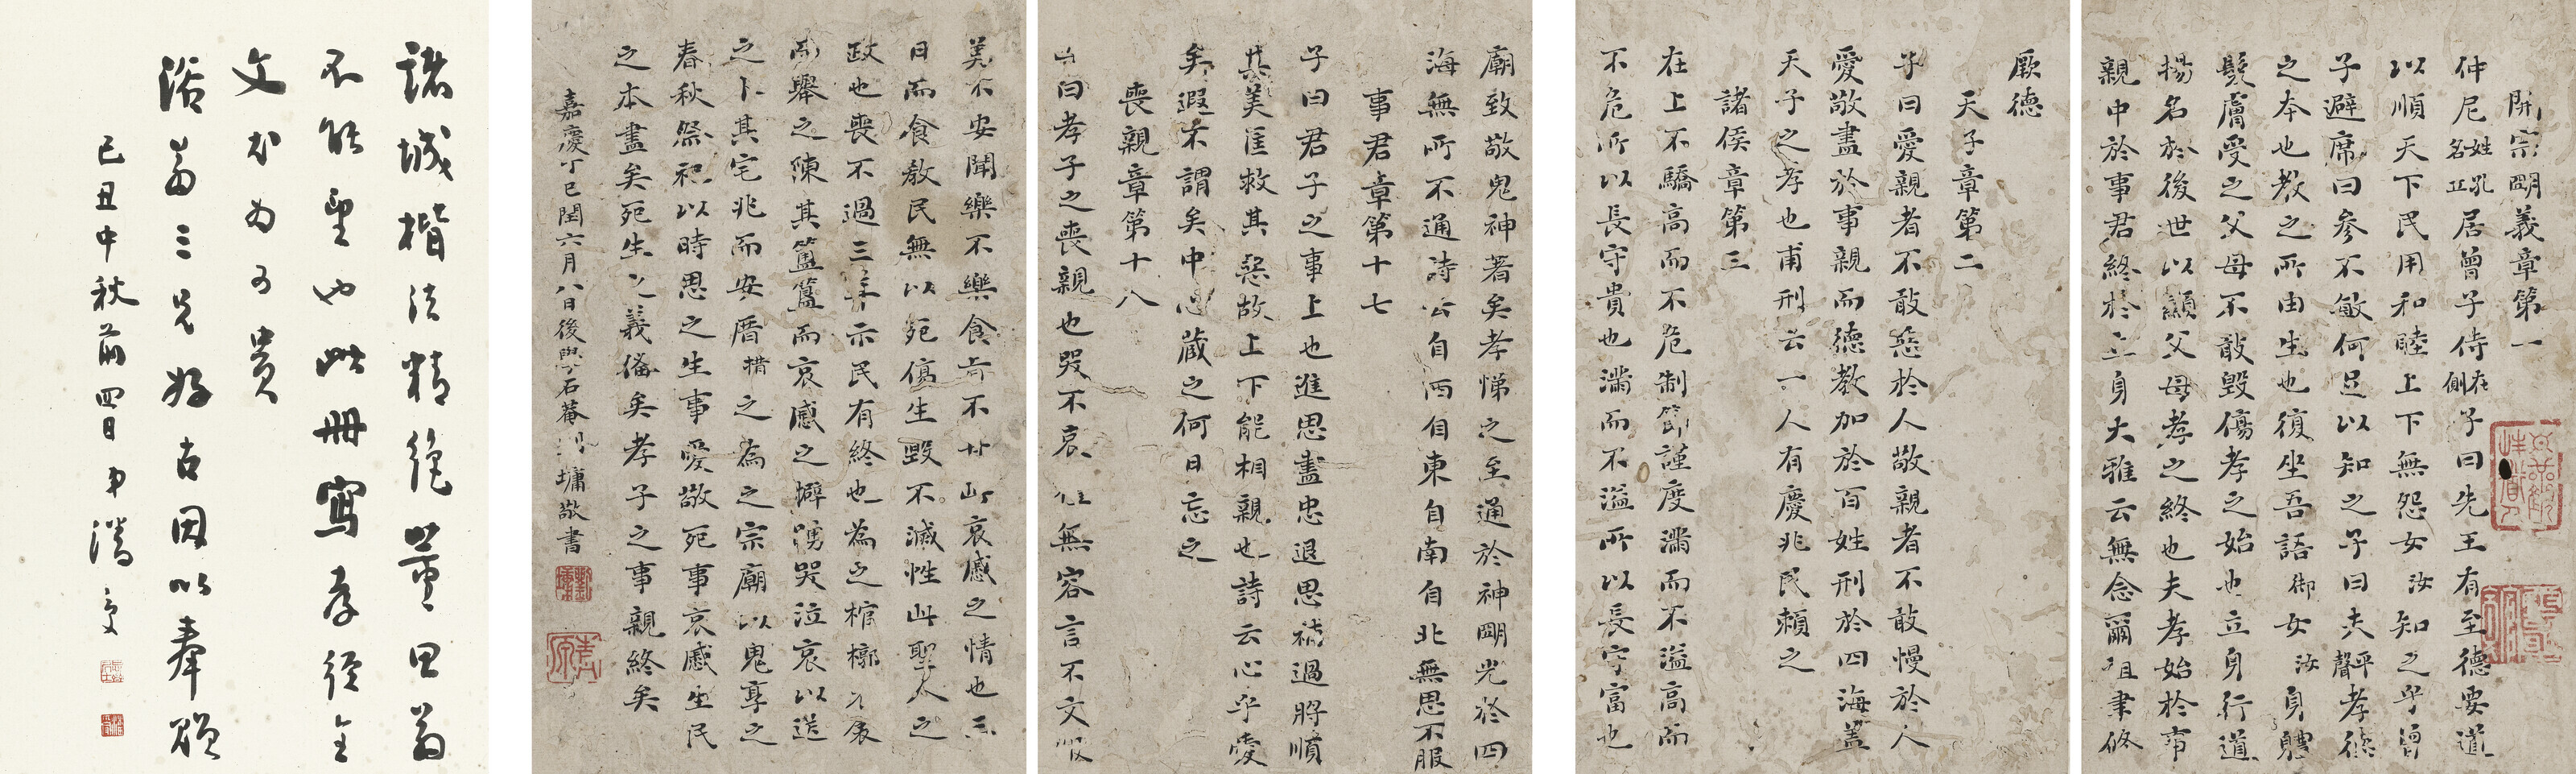 開宗明義章第一
仲尼姓孔名丘居曾子侍在側子曰先王有至德要道
以順天下民用和睦上下無怨女汝知之乎曾
子避席曰參不敏何足以知之子曰夫平聲孝德
之本也教之所由生也復坐吾語御女汝身體
髮膚受之父母不敢毀傷孝之始也立身行道
揚名於後世以顯父母孝之終也夫孝始於事
親中於事君終於立身大雅云無念爾祖聿修
厥德
天子章第二
子曰愛親者不敢惡於人敬親者不敢慢於人
愛敬盡於事親而德教加於百姓刑於四海蓋
天子之孝也甫刑云一人有慶兆民賴之
諸侯章第三
在上不驕高而不危制節謹度滿而不溢高而
不危所以長守貴也滿而不溢所以長守富也
廟致敬鬼神著矣孝悌之至通於神明光於四
海無所不通詩云自西自東自南自北無思不服
事君章第十七
子曰君子之事上也進思盡忠退思補過將順
其美匡救其惡故上下能相親也詩云心乎愛
矣遐不謂矣中心藏之何日忘之
喪親章第十八
子曰孝子之喪親也哭不哀禮無容言不文服
美不安聞樂不樂食旨不甘此哀慼之情也三
日而食教民無以死傷生毀不滅性此聖人之
政也喪不過三年示民有終也為之棺槨衣衾
而舉之陳其簠簋而哀慼之擗踴哭泣哀以送
之卜其宅兆而安厝措之為之宗廟以鬼享之
春秋祭祀以時思之生事愛敬死事哀慼生民
之本盡矣死生之義備矣孝子之事親終矣
嘉慶丁巳閏六月八日後學石菴劉墉敬書
諸城楷法精絕董思翁
不能望也此冊寫孝經全
文尤為可貴
浴萬三兄好古因以奉贈
己丑中秋前四日弟潘受